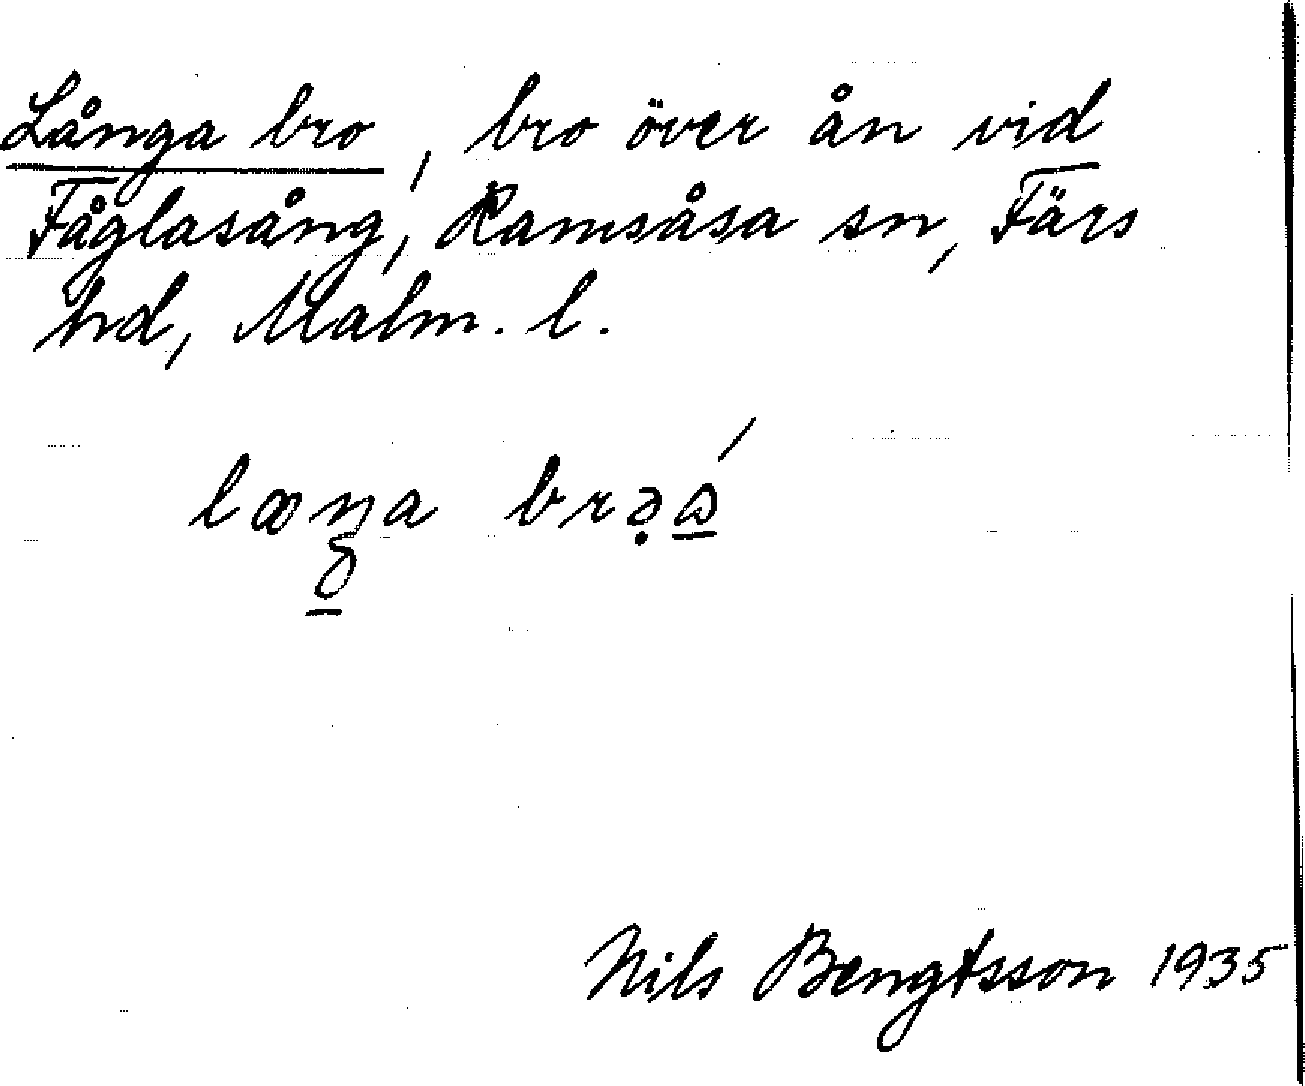 Långa bro, bro över ån vid
Fåglasång, Ramsåsa sn, Färs
hrd, Malm. l.
Nils Bengtsson 1935